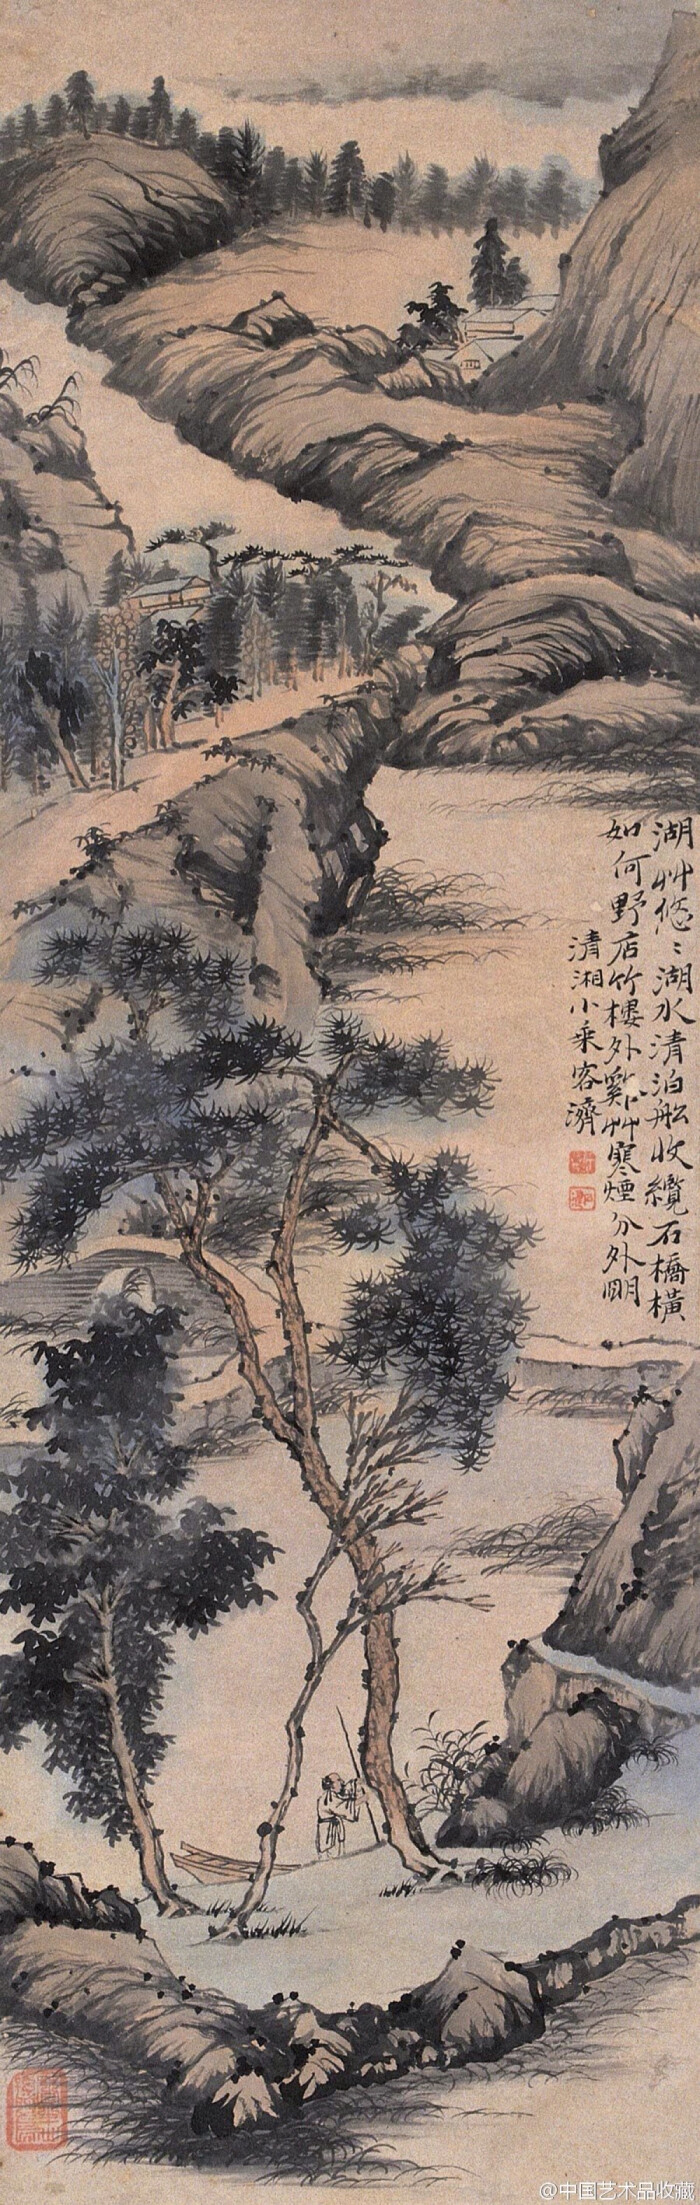 湖艸悠〻湖水清泊舩收纜石橋橫
如何野店竹樓外艸寒煙分外明
清湘小乘客濟
@中国艺术品收藏